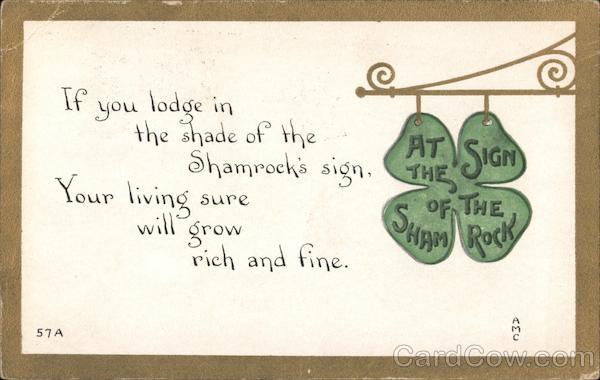 If you lodge in
the shade of the
Shamrock's sign,
Your living sure
will grow
rich and fine.
AT THE SIGN
OF THE
SHAM ROCK
57A
AMC
CardCow.com